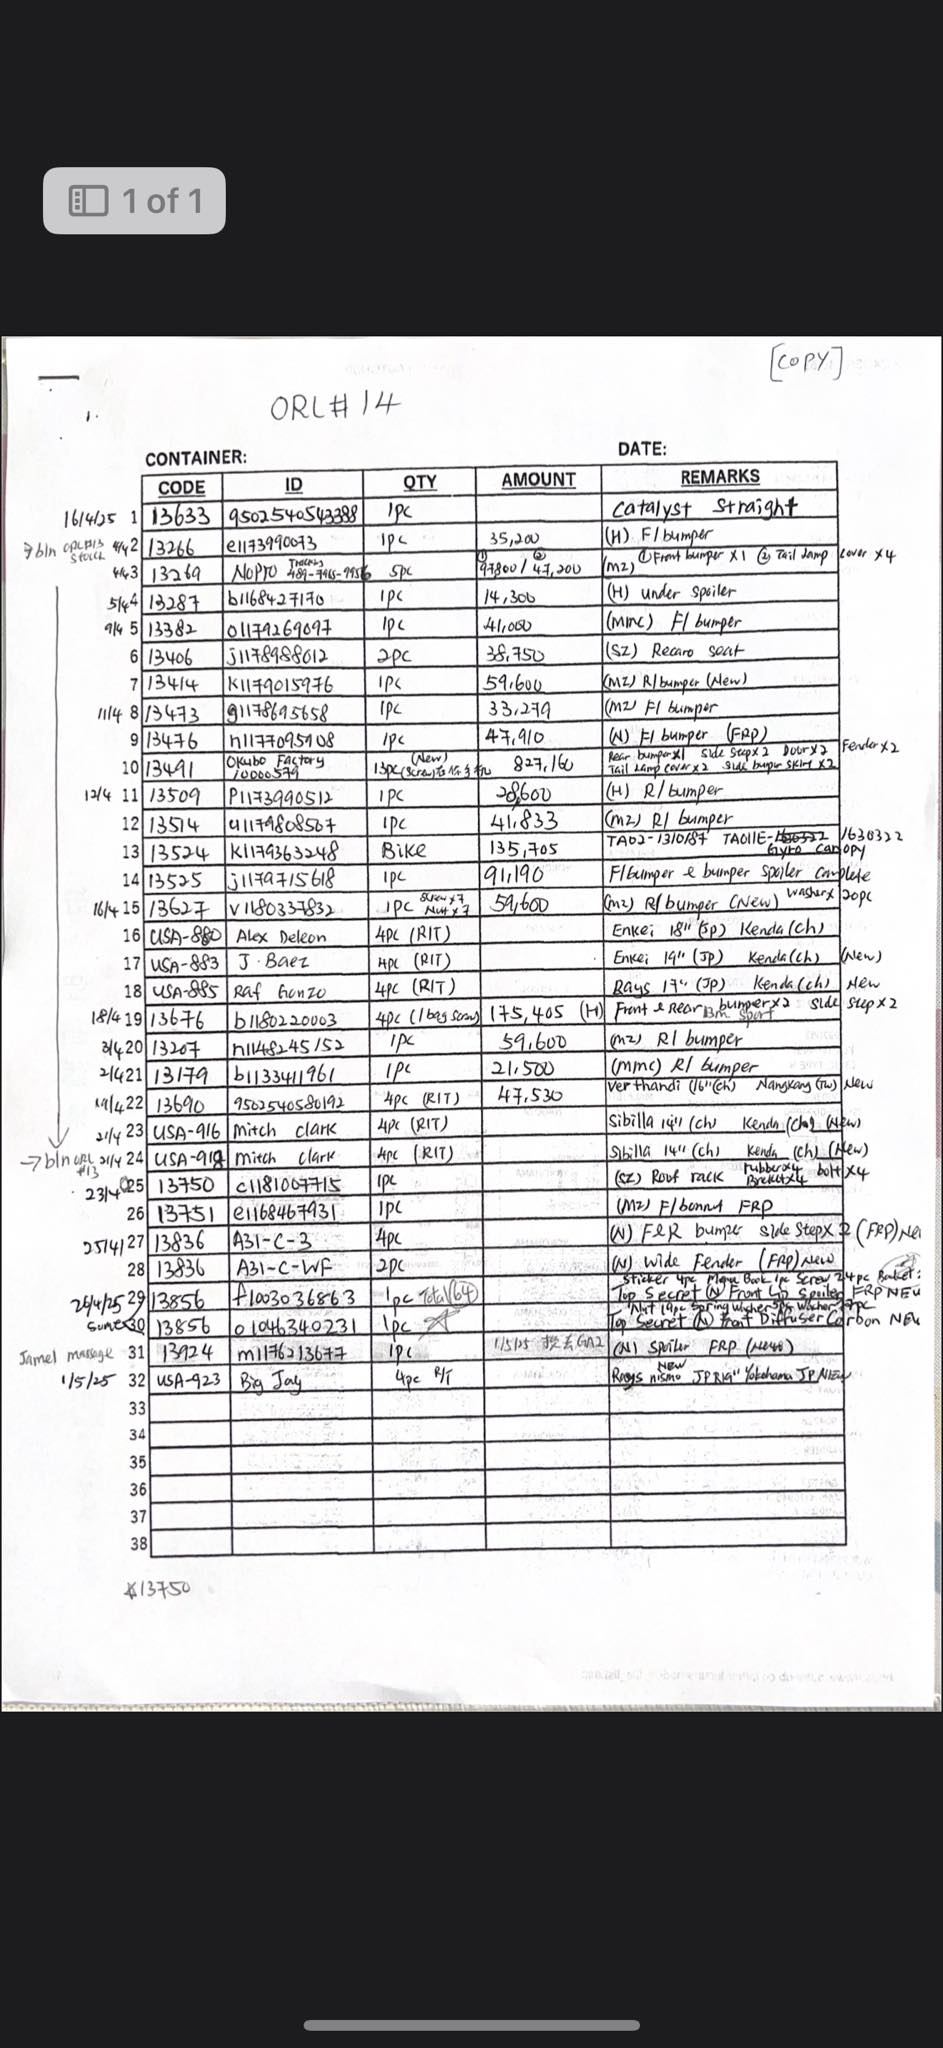 1 of 1
[COPY]
ORL# 14
CONTAINER: DATE:
CODE ID QTY AMOUNT REMARKS
16/4/25 1 13633 9502540543388 1pc Catalyst Straight
2 13266 e1173990073 1pc 35,200 (H) F/bumper
4/4 3 13269 Nopro 5pc ① ② 97800 / 47,200 (MZ) ① Front bumper x 1 ② Tail lamp cover x 4
5/4 4 13287 b1168427170 1pc 14,300 (H) under spoiler
9/4 5 13382 o1179269097 1pc 41,000 (MMC) F/ bumper
6 13406 j1178988012 2pc 38,750 (SZ) Recaro seat
7 13414 k1179015976 1pc 59,600 (MZ) R/bumper (New)
11/4 8 13473 g1178695658 1pc 33,279 (MZ F/ bumper
9 13476 n1177095908 1pc 47,910 (N) F/ bumper (FRP)
10 13491 Okubo Factory 10000579 13pc (New) 827,160 Rear bumper x1 Side Step x 2 Door x 2 Fender x 2
Tail Lamp cover x 2 Side bumper skirt x 2
12/4 11 13509 P1173990512 1pc 28,600 (H) R/bumper
12 13514 u1179808567 1pc 41,833 (MZ) R/ bumper
13 13524 k1179363248 Bike 135,705 TA02-1310187 TA01E- 1630322
Gyro canopy
14 13525 j1179715618 1pc 91,190 F/bumper & bumper spoiler complete
16/4 15 13627 v1180337832 1pc Screw x 7 Nut x 7 59,600 (MZ) R/bumper (New) washer x 20pc
16 USA-880 Alex Deleon 4pc (R/T) Enkei 18" (JP) Kenda (ch)
17 USA-883 J. Baez 4pc (R/T) Enkei 19" (JP) Kenda (ch) (New)
18 USA-885 Raf Gonzo 4pc (R/T) Rays 17" (JP) Kenda (ch) New
18/4 19 13676 b1180220003 4pc (1 bag screw) 175,405 (H) Front & Rear bumper x 2 side step x 2
3/4 20 13207 n1148245152 1pc 59,600 (MZ) R/ bumper
2/4 21 13179 b1133411961 1pc 21,500 (MMC) R/ bumper
19/4 22 13690 9502540580192 4pc (R/T) 47,530 Verthandi (16" (ch) Nangkang (TW) New
21/4 23 USA-916 Mitch Clark 4pc (R/T) Sibilla 14" (ch) Kenda (ch) (New)
21/4 24 USA-918 Mitch Clark 4pc (R/T) Sibilla 14" (ch) Kenda (ch) (New)
23/4 25 13750 c1181007715 1pc (SZ) Roof rack rubber x 4 bolt x 4
26 13751 e1168467931 1pc (MZ) F/bonnet FRP
25/4 27 13836 A31-C-3 4pc (N) F&R bumper side Step x 2 (FRP) New
28 13836 A31-C-WF 2pc (N) Wide Fender (FRP) New
Sticker 4pc Menu Book 1pc Screw 24pc
29 13856 f1003036863 1pc Total (64) Top Secret (N) Front Lip Spoiler FRP NEW
30 13856 o1046340231 1pc Top Secret (N) Front Diffuser Carbon NEW
Jamel massage 31 13924 m1176213677 1pc 1/5/25 GA2 (N) Spoiler FRP (New)
1/5/25 32 USA-923 Big Jay 4pc R/T Rays NEW nismo JP R19" Yokohama JP NEW
33
34
35
36
37
38
13750